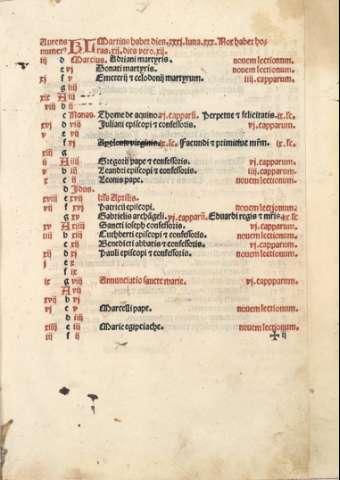 Aurens KL Martius habet dien. xxxj. luna. xxx. Nox habet ho
numer9 ras. xij. dies vero. xij.
iij d Marcius. Adriani martyris. nouem lectionum.
e vj Donati martyris. nouem lectionum.
xj f v Emeterij & celodonij martyrum. iiij. capparum.
g iiij
xix A iij
viij b ij
c Nonas. Thome de aquino vj. capparum. Perpetue & felicitatis. ix. lc.
xvj d viij Juliani episcopi & confessoris. vj. capparum.
v e vij
f vj ix. lc. Facundi & primitiue mrm. ix. lc.
xiij g v
ij A iiij Gregorij pape & confessoris. vj. capparum.
b iij Leandri episcopi & confessoris. iiij. capparum.
x c ij Leonis pape. nouem lectionum.
d Idus.
xviij e xvij Aprilis.
vij f xvj Patricij episcopi. nouem lectionum.
g xv Gabrielis archangeli. vj. capparum. Eduardi regis & mris ix lc
xv A xiiij Sancti joseph confessoris. vj. capparum.
iiij b xiij Cuthberti episcopi & confessoris. nouem lectionum.
c xij Benedicti abbatis & confessoris. vj. capparum.
xij d xj Pauli episcopi & confessoris. nouem lectionum.
j e x
f ix
ix g viij Annunciatio sancte marie. vj. capparum.
A vij
xvij b vj
vj c v Marcelli pape. nouem lectionum.
d iiij
xiiij e iij Marie egipciache. nouem lectionum.
iij f ij ✠ ij